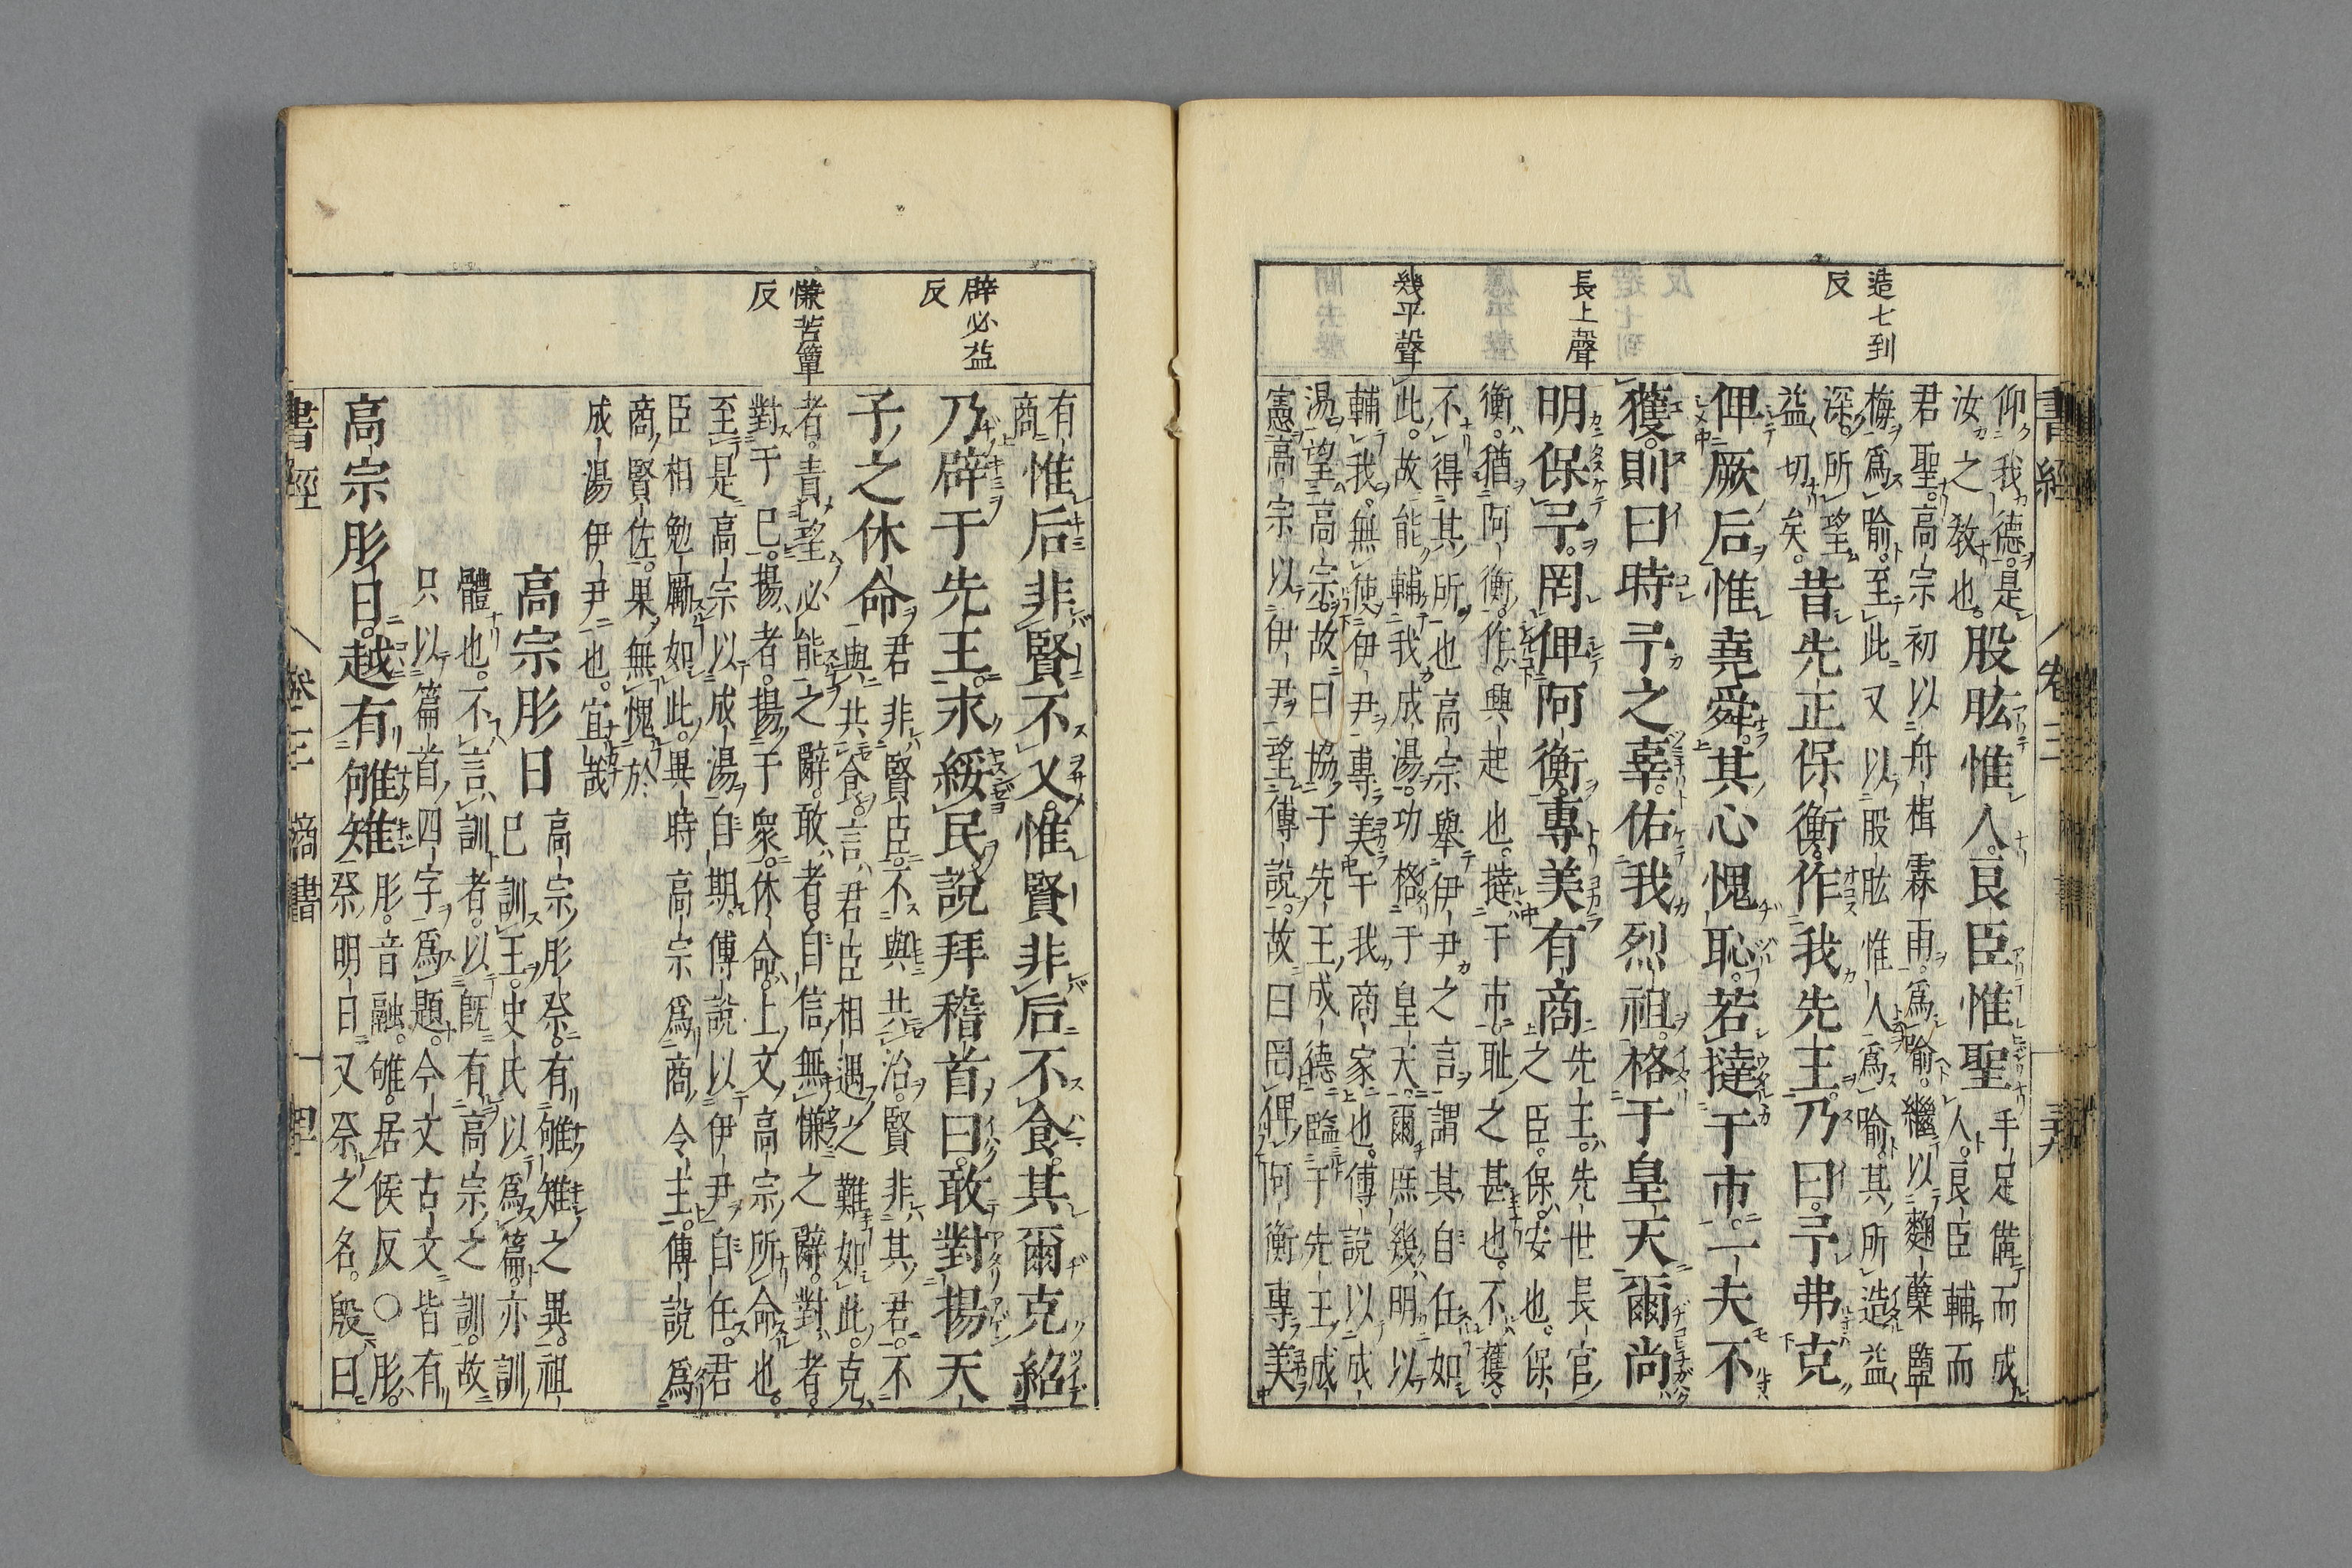 造七到
反
長上聲
幾平聲
書經 卷三 商書
仰我德。是
汝之教也。
股肱惟人。良臣惟聖
手足備而成
人。良臣輔而
君聖。高宗初以舟楫霖雨。爲喻。繼以麴糵鹽
梅爲喻。至此又以股肱惟人爲喻。其所造益
深。所望
益切矣。
昔先正保衡。作我先王。乃曰。予弗克
俾厥后。惟堯舜。其心愧恥。若撻于市。一夫不
獲。則曰時予之辜。佑我烈祖。格于皇天。爾尚
明保予。罔俾阿衡。專美有商
先王。先世長官
之臣。保。安也。保
衡。猶阿衡。作。興起也。撻于市。恥之甚也。不獲。
不得其所也。高宗舉伊尹之言。謂其自任如
此。故能輔我成湯。功格于皇天。爾庶幾明以
輔我。無使伊尹專美于我商家也。傅說以成
湯望高宗。故曰協于先王成德。監于先王成
憲。高宗以伊尹望傅說。故曰罔俾阿衡專美
辟必益
反
慊苦簟
反
有
商
惟后非賢不乂。惟賢非后不食。其爾克紹
乃辟于先王。永綏民。說拜稽首曰。敢對揚天
子之休命
君非賢臣。不與共治。賢非其君。不
與共食。言君臣相遇之難如此。克
者。責望必能之辭。敢者。自信無慊之辭。對者。
對于己。揚者。揚于衆。休命。上文高宗所命也。
至是高宗以成湯自期。傅說以伊尹自任。君
臣相勉勵如此。異時高宗爲商令王。傅說爲
商賢佐。果無愧於
成湯伊尹也。宜哉
高宗肜日
高宗肜祭。有雊雉之異。祖
己訓王。史氏以爲篇。亦訓
體也。不言訓者。以旣有高宗之訓。故
只以篇首四字爲題。今文古文皆有
高宗肜日。越有雊雉
肜。音融。雊。居候反○肜。
祭明日又祭之名。殷曰
書經 卷三 商書